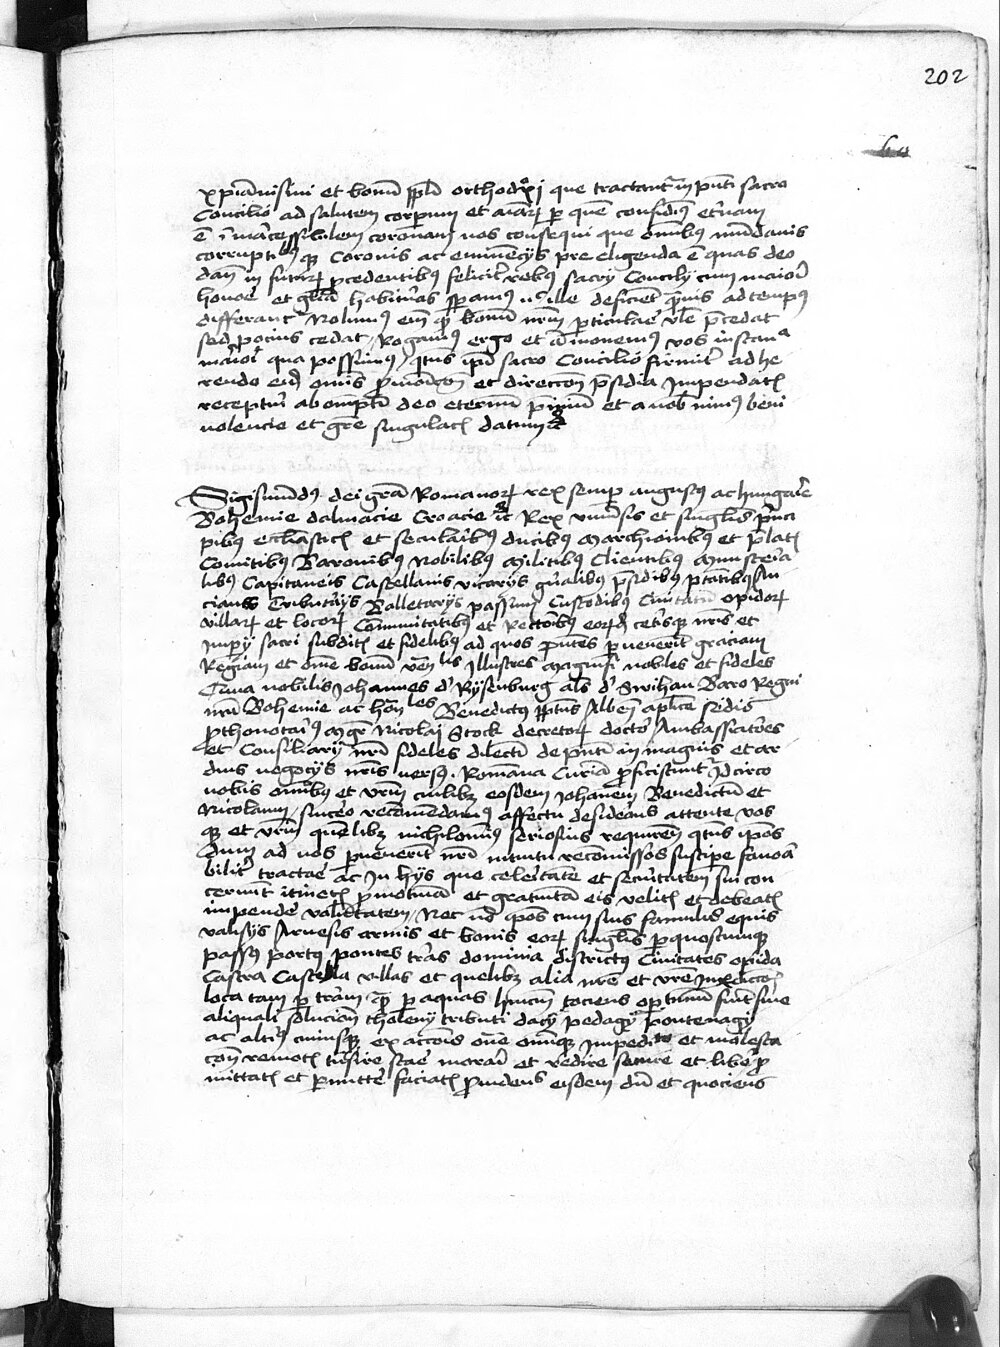 202
xpianissimi et bonum ppli orthodoxi que tractantur in pnti sacro
Concilio ad salutem corporum et aiarum per quem confidimus eternam
et immarcessibilem coronam vos consequi que omnibus mundanis
corruptibilibusque Coronis ac eminencys pre eligenda est quas deo
dante in futurum precedentibus feliciter rebus sacri Concily cum maiori
honore et gloria habituros speramus nec ille deficient quamuis ad tempus
differantur Nolumus enim quod bonum nostrum particulare vestrum precedat
sed pocius cedat Rogamus ergo et admonemus vos instancia
maiori qua possumus quatenus ipsi sacro Concilio firmiter adhe
rendo eidem omnis promocionis et direccionis presidia Impendatis
recepturi ab omnipotenti deo eternum premium et a nobis nimis beni
uolencie et gracie singularis datum etc
Sigismundus dei gra Romanorum rex semper augustus ac hungarie
Bohemie dalmacie Croacie etc Rex vniuersis et singulis princi
pibus ecclesiasticis et secularibus ducibus Marchionibus et prelatis
Comitibus Baronibus Nobilibus Militibus Clientibus Ministeria
libus Capitaneis Castellanis vicarys generalibus presidibus potestatibus An
cianis Tributarys Balletarys passuum Custodibus Ciuitatum opidorum
villarum et locorum Communitatibus et Rectoribus eorundem ceterisque nostris et
Impery sacri subditis et fidelibus ad quos presentes peruenerint graciam
Regiam et omne bonum Illustres Magnifici nobiles et fideles
Cum nobilis Johannes de Rysenburg alias de Swihau Baro Regni
nostri Bohemie ac honorabiles Benedictus prepositus Albensis aplice sedis
prothonotarius Magister Nicolaus Stock decretorum doctor Ambassiatores
et Consiliary nostri fideles dilecti de presenti in magnis et ar
duis negocys nostris versus Romanam Curiam proficiscuntur Idcirco
vobis omnibus et vestrum cuilibet eosdem Johannem Benedictum et
Nicolaum sincero recommendamus affectu desiderantes attente vos
que et vestrum quemlibet nichilominus seriosius requirentes quatenus ipsos
dum ad vos peruenerint nostri intuitu recommissos suscipere fauora
biliter tractare ac In hys que celeritatem et securitatem sui con
cernunt itineris promotiuam et gratuitam eis velitis et debeatis
impendere voluntatem Nec non ipsos cum suis famulis equis
valisys Arnesys armis et bonis eorum singulis per quoscumque
passus portus pontes terras dominia districtus Ciuitates opida
Castra Castella villas et quelibet alia nostre et vestre Iurisdicionis
loca tam per terram quam per aquas hincinde tociens oportunum fuerit sine
aliquali solucione theloney tributi dacy pedagy pontenagy
ac alterius cuiusque exaccionis onere omnique Impedimento et molesta
cione remotis transire stare morari et redire secure et libere per
mittatis et permittere faciatis prouidentes eisdem dum et quociens